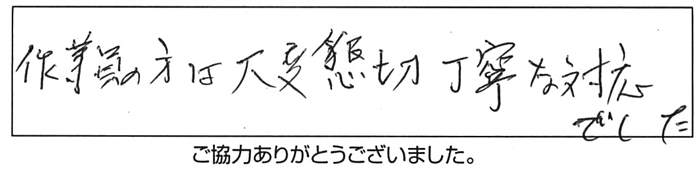 作業員の方は大変懇切丁寧な対応
でした
ご協力ありがとうございました。